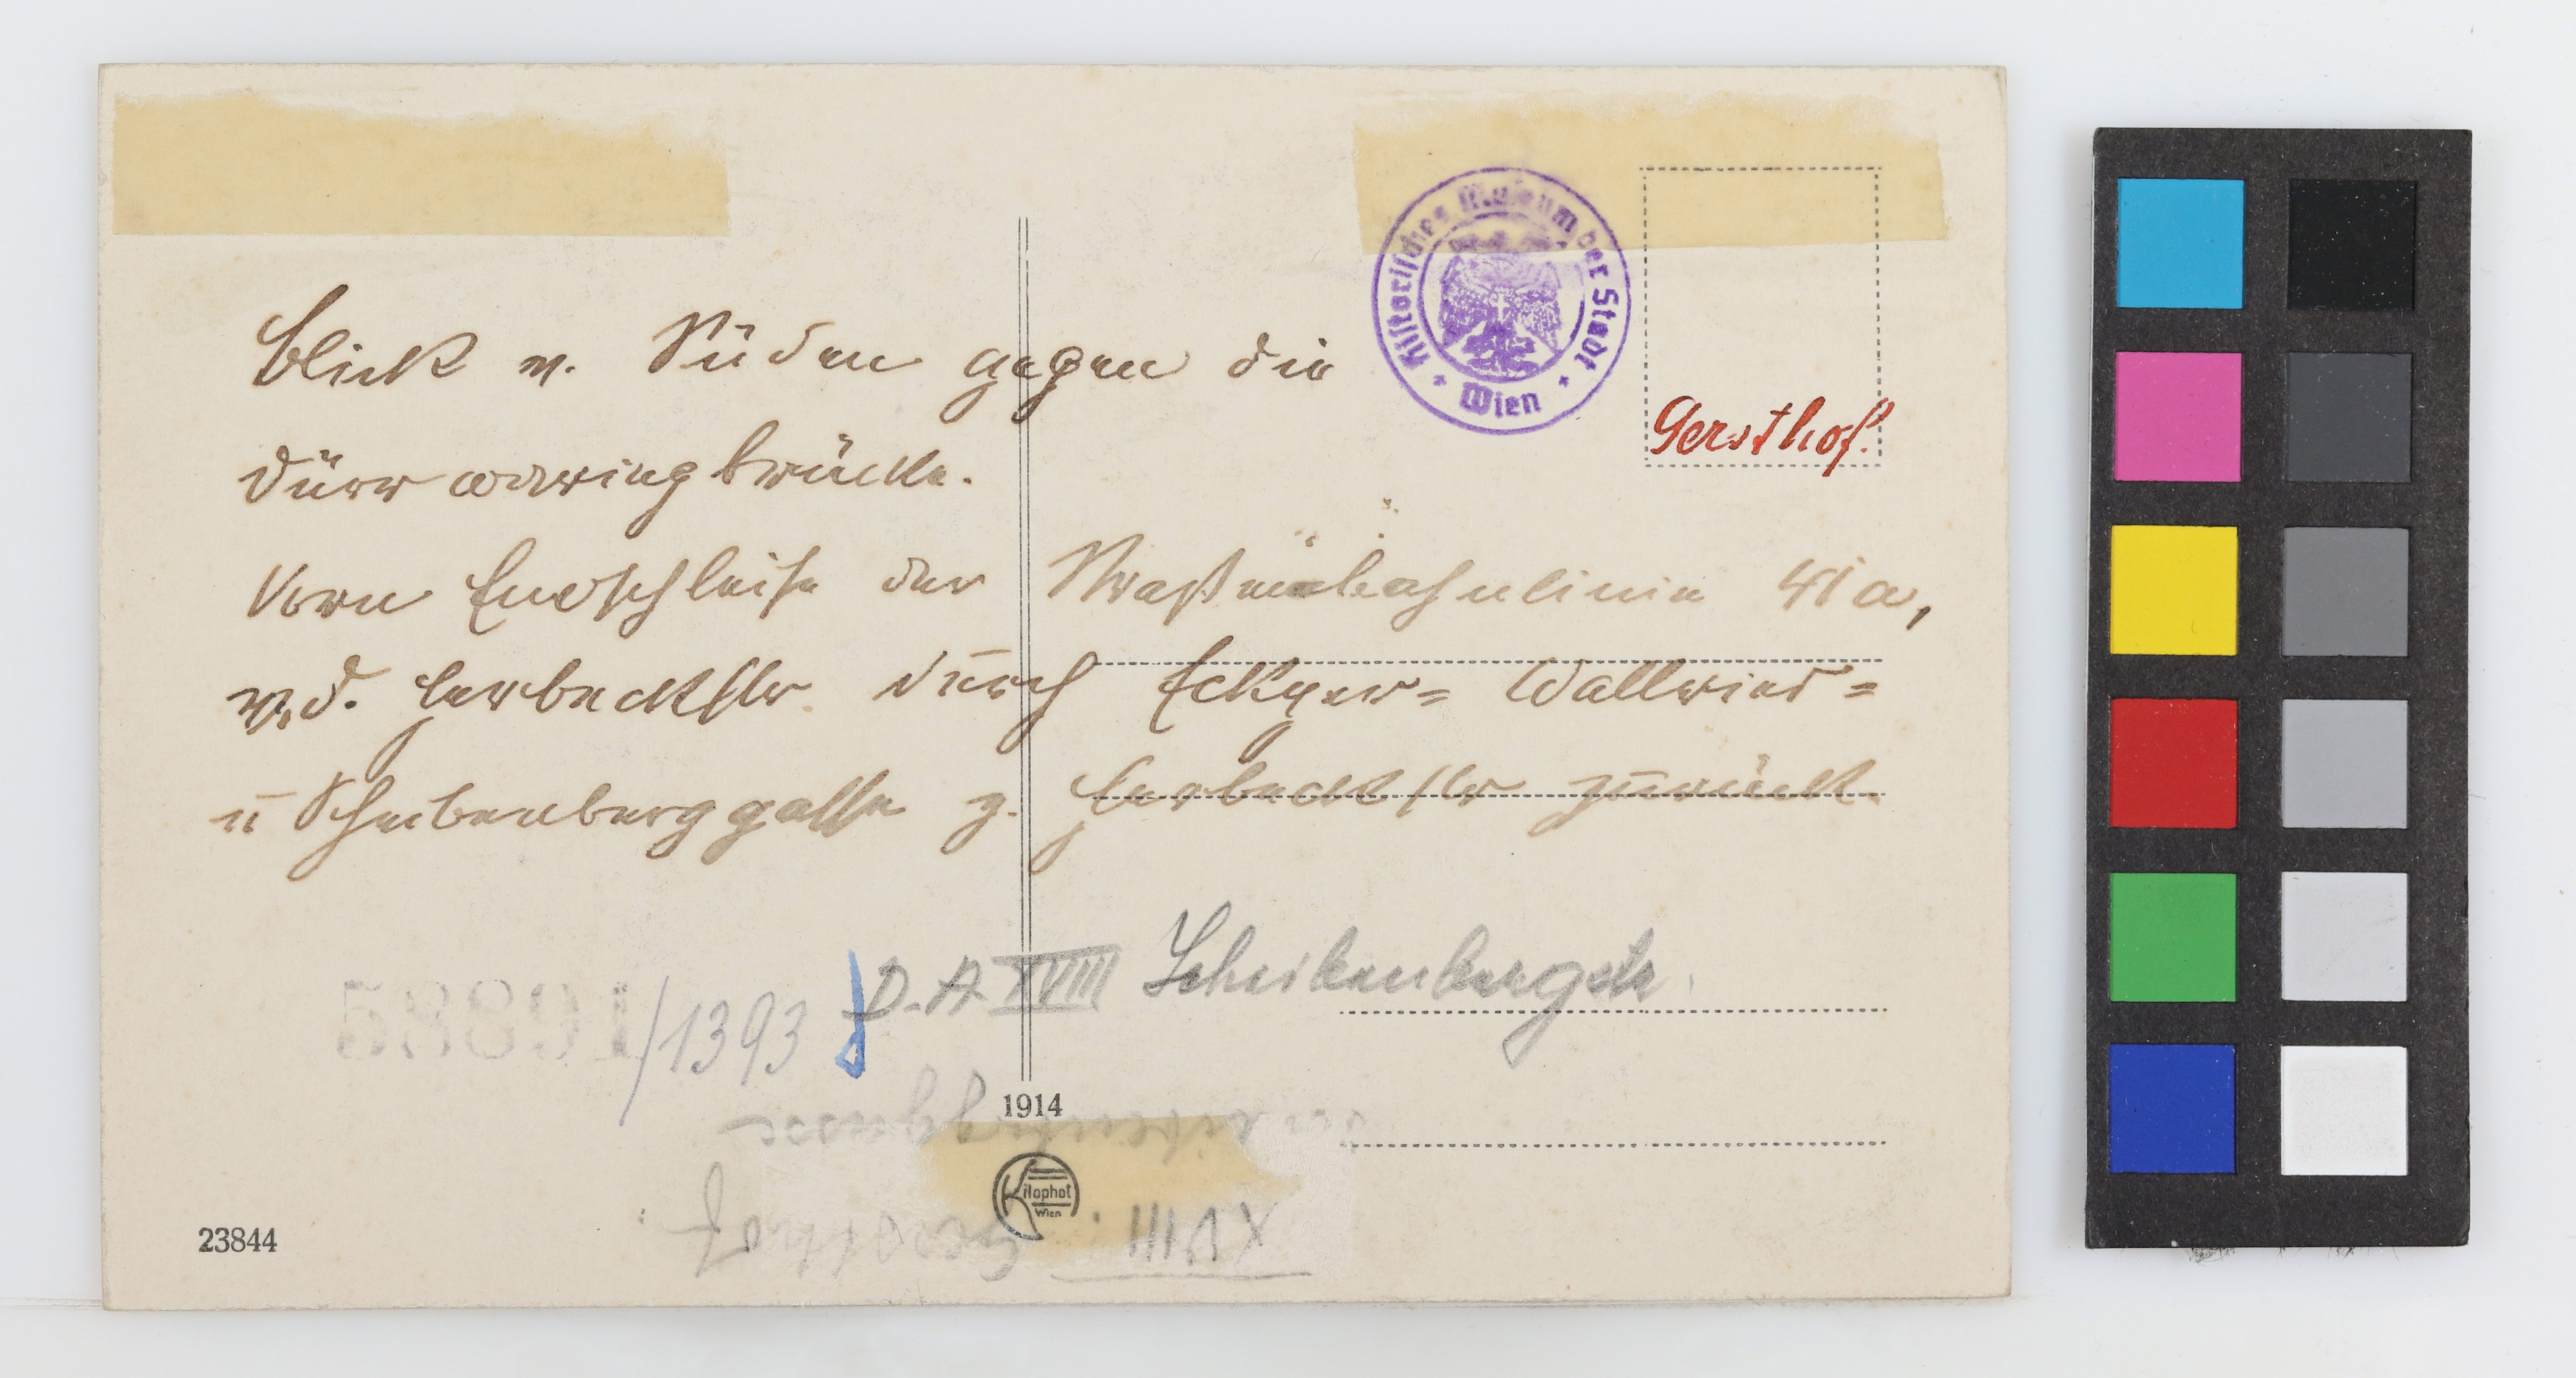 Historisches Museum der Stadt
Wien
Gersthof.
Blick v. Süden gegen die
Dürrwaringbrücke.
Vorn Endschleife der Straßenbahnlinie 41a,
v. d. Herbeckstr. durch Eckper= Wallrieß=
u Scheibenberggasse z. Herbeckstr zurück.
D. A. XVIII Scheibenbergstr.
58891/1393
1914
Kilophot
Wien
XVIII. Gersthof
23844